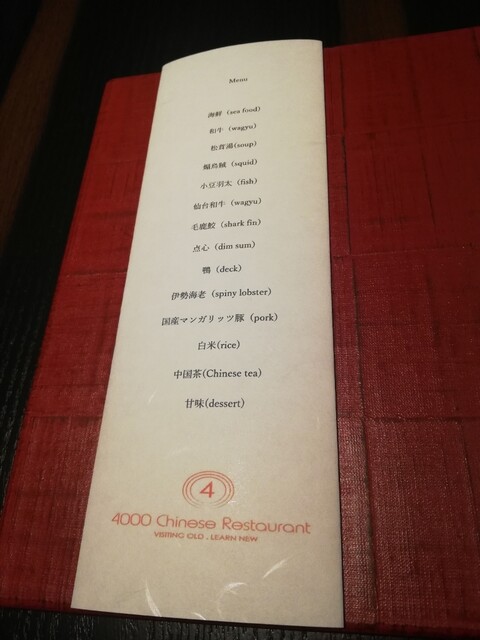 Menu
海鮮 (sea food)
和牛 (wagyu)
松茸湯(soup)
烏賊 (squid)
小豆羽太 (fish)
仙台和牛 (wagyu)
毛鹿鮫 (shark fin)
点心 (dim sum)
鴨 (deck)
伊勢海老 (spiny lobster)
国産マンガリッツ豚 (pork)
白米(rice)
中国茶(Chinese tea)
甘味(dessert)
4
4000 Chinese Restaurant
VISITING OLD , LEARN NEW